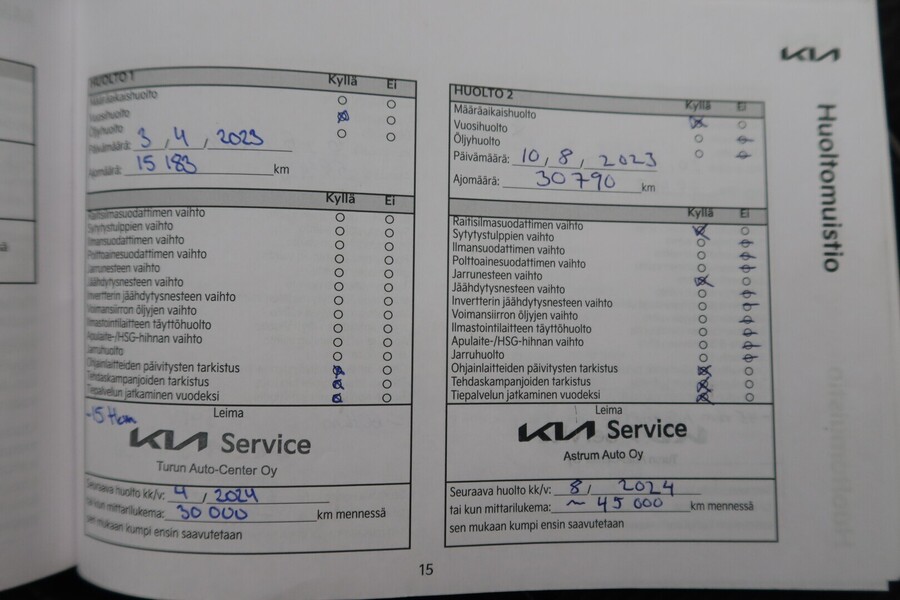 KIA
Huoltomuistio
HUOLTO 1 Kyllä Ei
Määräaikaishuolto
Vuosihuolto
Öljyhuolto
Päivämäärä: 3, 4, 2023
Ajomäärä: 15 183 km
Kyllä Ei
Raitisilmasuodattimen vaihto
Sytytystulppien vaihto
Ilmansuodattimen vaihto
Polttoainesuodattimen vaihto
Jarrunesteen vaihto
Jäähdytysnesteen vaihto
Invertterin jäähdytysnesteen vaihto
Voimansiirron öljyjen vaihto
Ilmastointilaitteen täyttöhuolto
Apulaite-/HSG-hihnan vaihto
Jarruhuolto
Ohjainlaitteiden päivitysten tarkistus
Tehdaskampanjoiden tarkistus
Tiepalvelun jatkaminen vuodeksi
Leima
KIA Service
Turun Auto-Center Oy
Seuraava huolto kk/v: 4, 2024
tai kun mittarilukema: 30 000 km mennessä
sen mukaan kumpi ensin saavutetaan
HUOLTO 2 Kyllä Ei
Määräaikaishuolto
Vuosihuolto
Öljyhuolto
Päivämäärä: 10, 8, 2023
Ajomäärä: 30 790 km
Kyllä Ei
Raitisilmasuodattimen vaihto
Sytytystulppien vaihto
Ilmansuodattimen vaihto
Polttoainesuodattimen vaihto
Jarrunesteen vaihto
Jäähdytysnesteen vaihto
Invertterin jäähdytysnesteen vaihto
Voimansiirron öljyjen vaihto
Ilmastointilaitteen täyttöhuolto
Apulaite-/HSG-hihnan vaihto
Jarruhuolto
Ohjainlaitteiden päivitysten tarkistus
Tehdaskampanjoiden tarkistus
Tiepalvelun jatkaminen vuodeksi
Leima
KIA Service
Astrum Auto Oy
Seuraava huolto kk/v: 8, 2024
tai kun mittarilukema: ~ 45 000 km mennessä
sen mukaan kumpi ensin saavutetaan
15